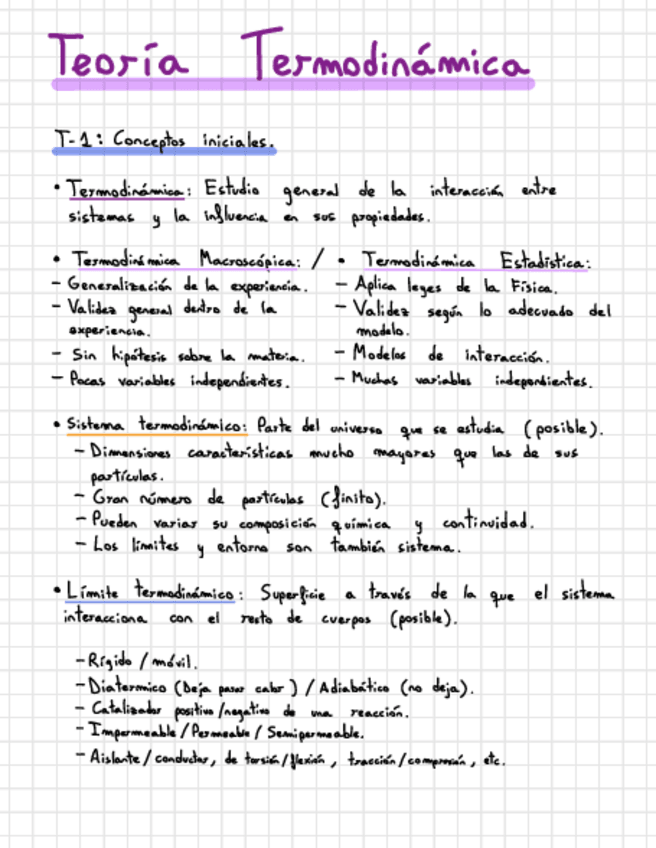 Teoría Termodinámica
T-1: Conceptos iniciales.
• Termodinámica: Estudio general de la interacción entre
sistemas y la influencia en sus propiedades.
• Termodinámica Macroscópica: / • Termodinámica Estadística:
- Generalización de la experiencia.
- Validez general dentro de la
experiencia.
- Sin hipótesis sobre la materia.
- Pocas variables independientes.
- Aplica leyes de la Física.
- Validez según lo adecuado del
modelo.
- Modelos de interacción.
- Muchas variables independientes.
• Sistema termodinámico: Parte del universo que se estudia (posible).
- Dimensiones características mucho mayores que las de sus
partículas.
- Gran número de partículas (finito).
- Pueden variar su composición química y continuidad.
- Los límites y entorno son también sistema.
• Límite termodinámico: Superficie a través de la que el sistema
interacciona con el resto de cuerpos (posible).
- Rígido / móvil.
- Diatermico (Deja pasar calor) / Adiabático (no deja).
- Catalizador positivo/negativo de una reacción.
- Impermeable / Permeable / Semipermeable.
- Aislante / conductor, de torsión/flexión, tracción/compresión, etc.